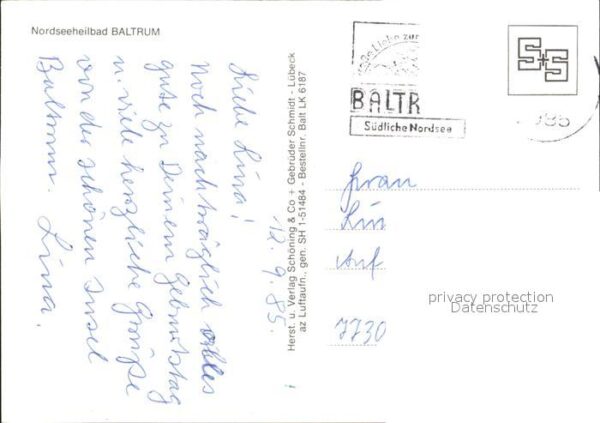 Nordseeheilbad BALTRUM
12.9.85.
Liebe Lina!
Noch nachträglich alles
gute zu Deinem Geburtstag
u. viele herzliche Grüße
von der schönen Insel
Baltrum. Lina.
Herst. u. Verlag Schöning & Co + Gebrüder Schmidt - Lübeck
az Luftaufn., gen. SH 1-51484 - Bestellnr. Balt LK 6187
BALTR
Südliche Nordsee
S+S
Frau
Lin
Auf
7730
privacy protection
Datenschutz